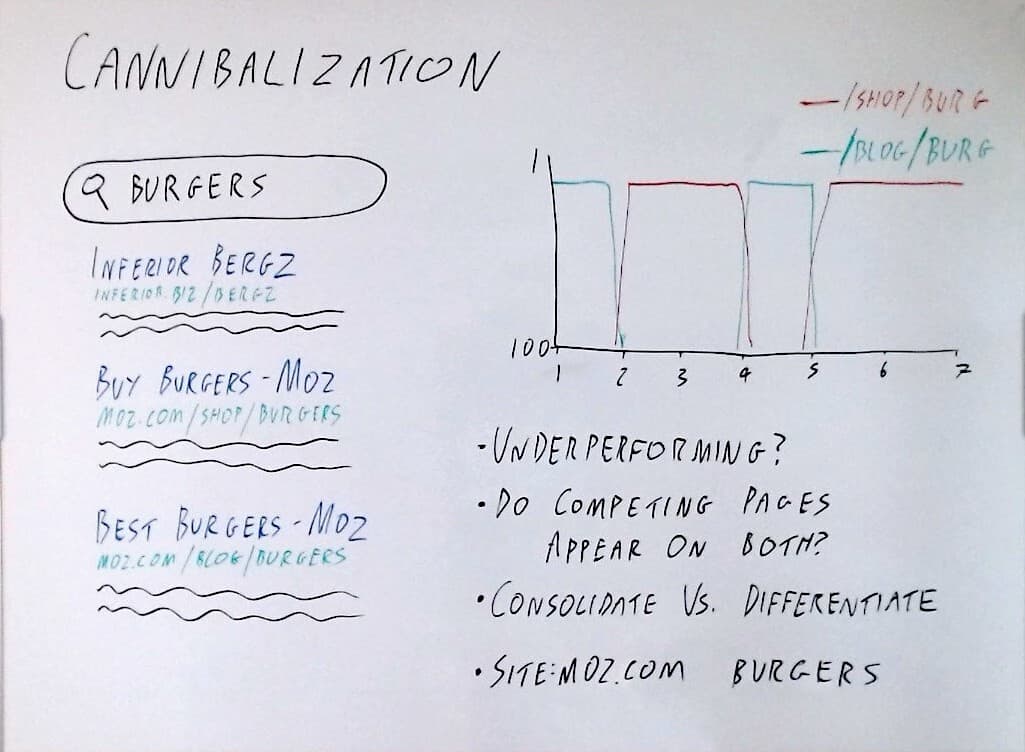 CANNIBALIZATION
BURGERS
INFERIOR BERGZ
INFERIOR.BIZ/BERGZ
BUY BURGERS - MOZ
MOZ.COM/SHOP/BURGERS
BEST BURGERS - MOZ
MOZ.COM/BLOG/BURGERS
/SHOP/BURG
/BLOG/BURG
1
100
1 2 3 4 5 6 7
- UNDERPERFORMING?
• DO COMPETING PAGES
APPEAR ON BOTH?
• CONSOLIDATE VS. DIFFERENTIATE
• SITE:MOZ.COM BURGERS